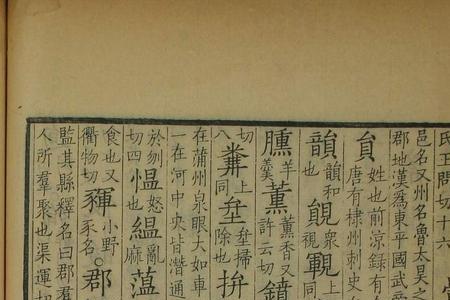 氏王問切十六
邑名又州名魯太昊之
郡地漢為東平國武帝
員姓也前涼録有
唐有棣州刺史
韻韻和也覞衆視
臐羊羹薰薰香又許云切
切八上同坌坌掃除也拚
在蒲州泉眼大如車
一在河中央皆潛通
於刎切四慍怒也縕亂麻薀
食也又
衢物切小野豕名○郡
監其縣釋名曰郡羣
人所羣聚也渠運切